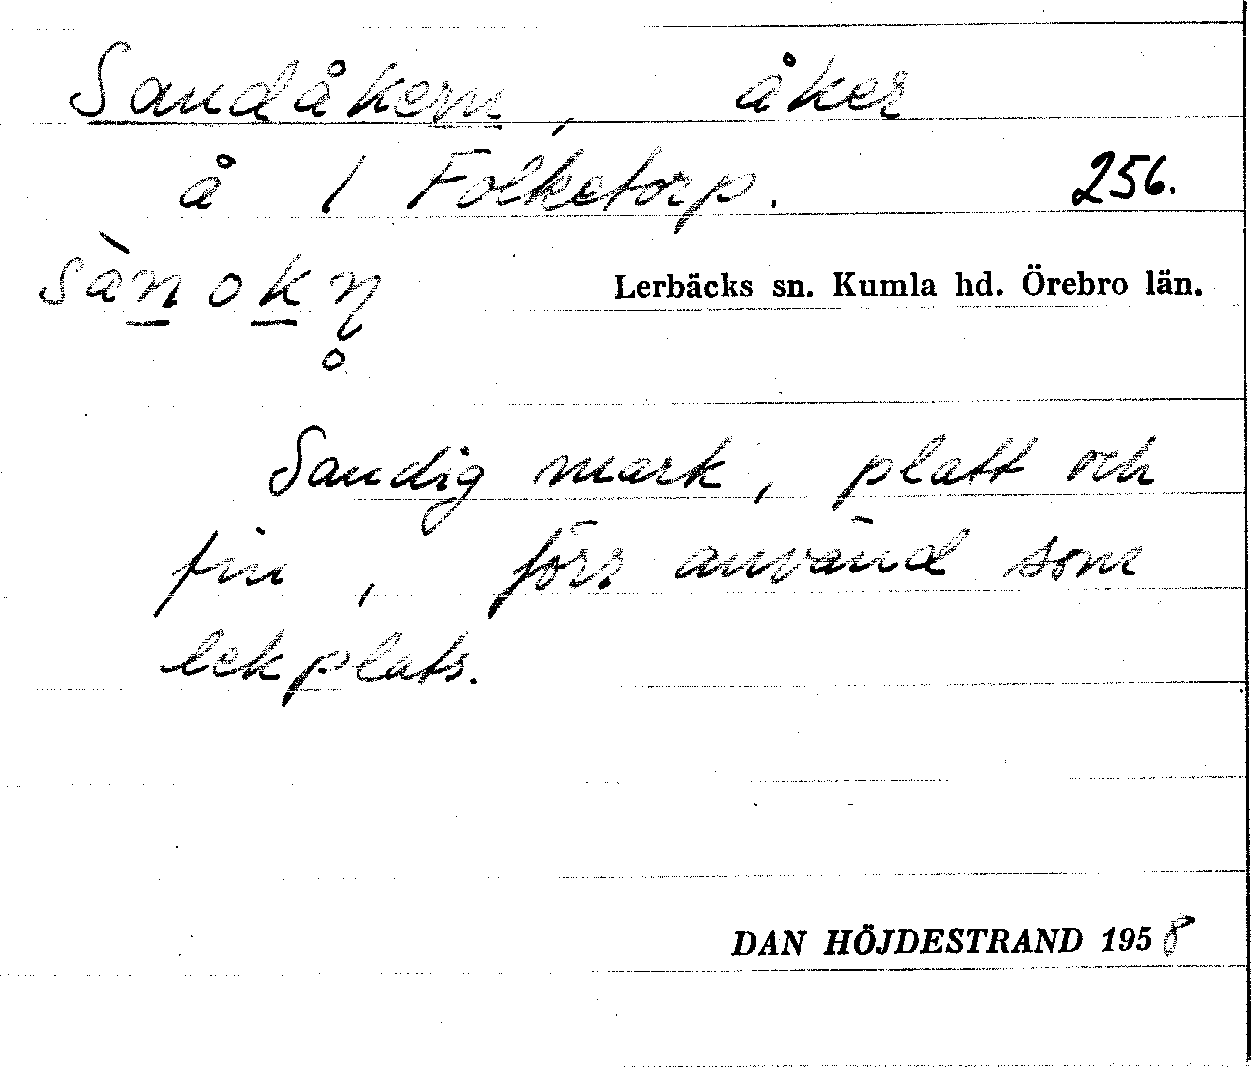 Sandåkern, åker
å 1 Folketorp. 256.
sàn̲ok̲ŋ̊
Lerbäcks sn. Kumla hd. Örebro län.
Sandig mark, platt och
fin, förr använd som
lekplats.
DAN HÖJDESTRAND 1958